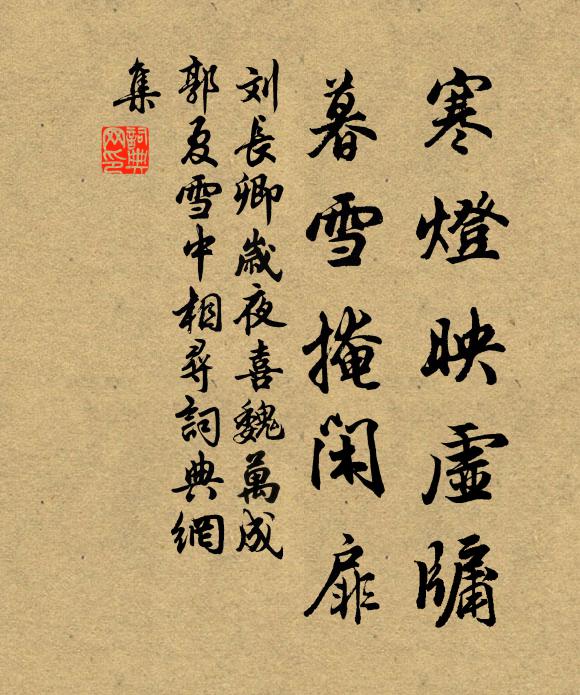 寒燈映虛牖
暮雪掩閑扉
刘長卿歲夜喜魏萬成
郭夏雪中相尋詞典網
集
詞典网印